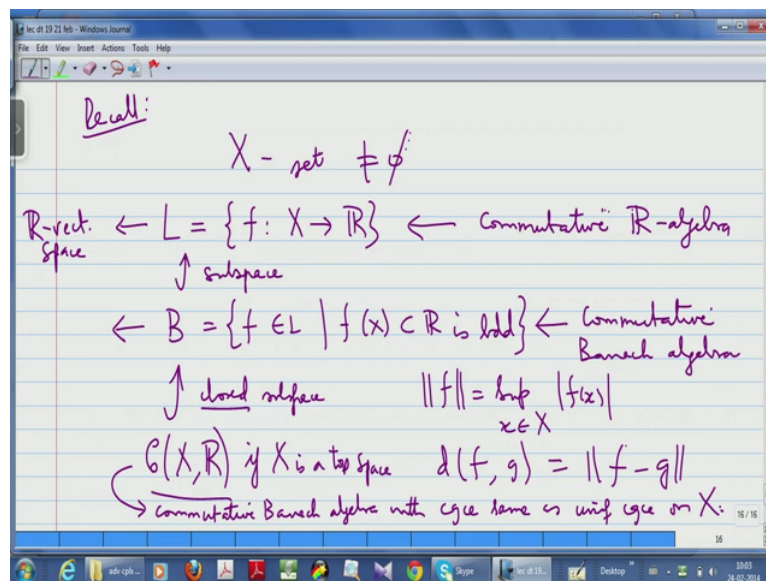 lec dt 19 21 feb - Windows Journal
File Edit View Insert Actions Tools Help
Recall:
X - set ≠ φ
R-vect. space ← L = {f: X → ℝ} ← Commutative ℝ-algebra
↑ subspace
← B = {f ∈ L | f(x) ⊂ ℝ is bdd} ← Commutative Banach algebra
↑ closed subspace ||f|| = Sup |f(x)|
x ∈ X
C(X, ℝ) if X is a top space d(f, g) = ||f - g||
→ commutative Banach algebra with cgce same as unif cgce on X.
16 / 16
16
adv cplx ... Skype lec dt 19... Desktop 10:03
24-02-2014